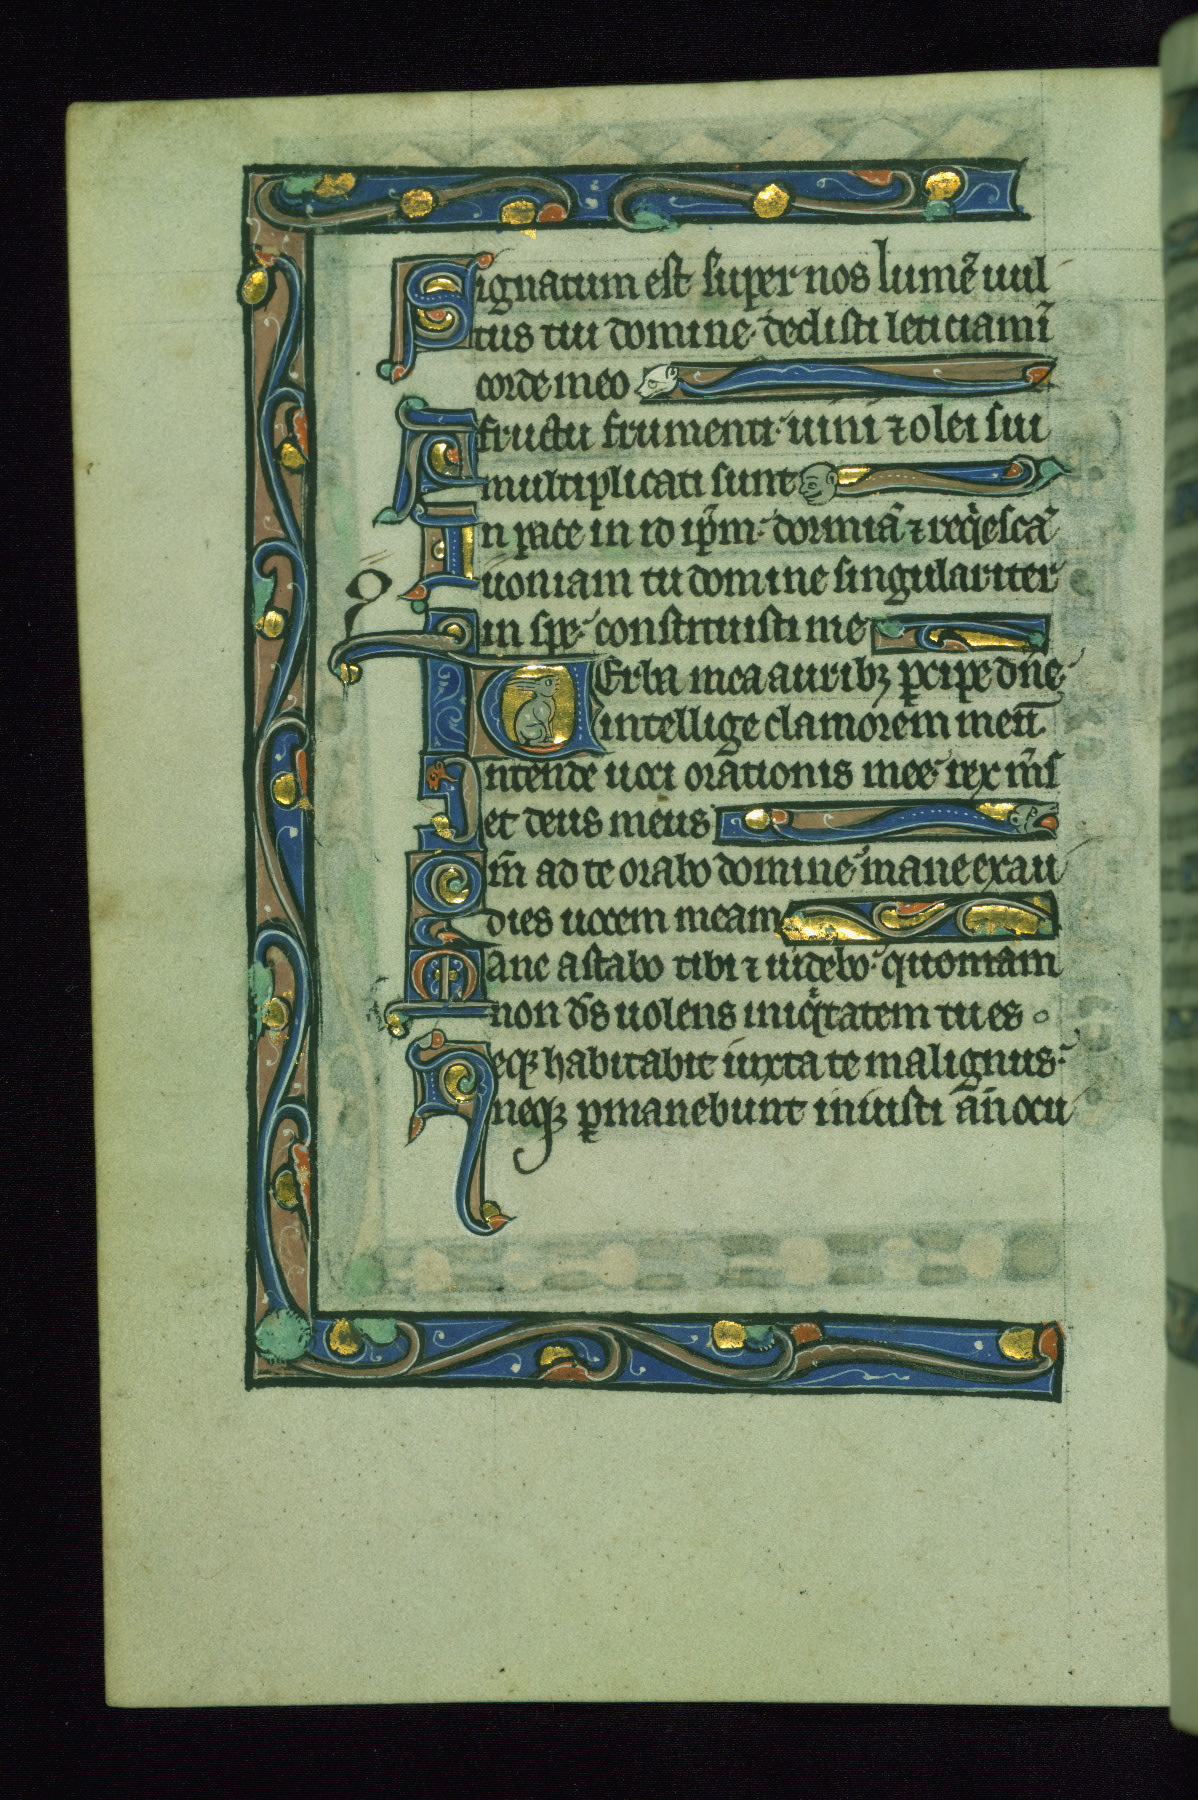 Signatum est super nos lumē uul
tus tui domine· dedisti leticiam ī
corde meo
A fructu frumenti· uini ⁊ olei sui
multiplicati sunt
In pace in id ip̄m· dormiā ⁊ req̇escā
uoniam tu domine singulariter
in spe· constituisti me
UErba mea auribꝫ ꝑcipe dn̄e·
intellige clamorem meū
Intende uoci orationis mee· rex m̄s
et deus meus
Qm̄ ad te orabo domine· mane exau
dies uocem meam
Mane astabo tibi ⁊ uidebo· quoniam
non ds̄ uolens iniqͥtatem tu es
Neqꝫ habitabit iuxta te malignus·
neqꝫ ꝑmanebunt iniusti an̄ ocu